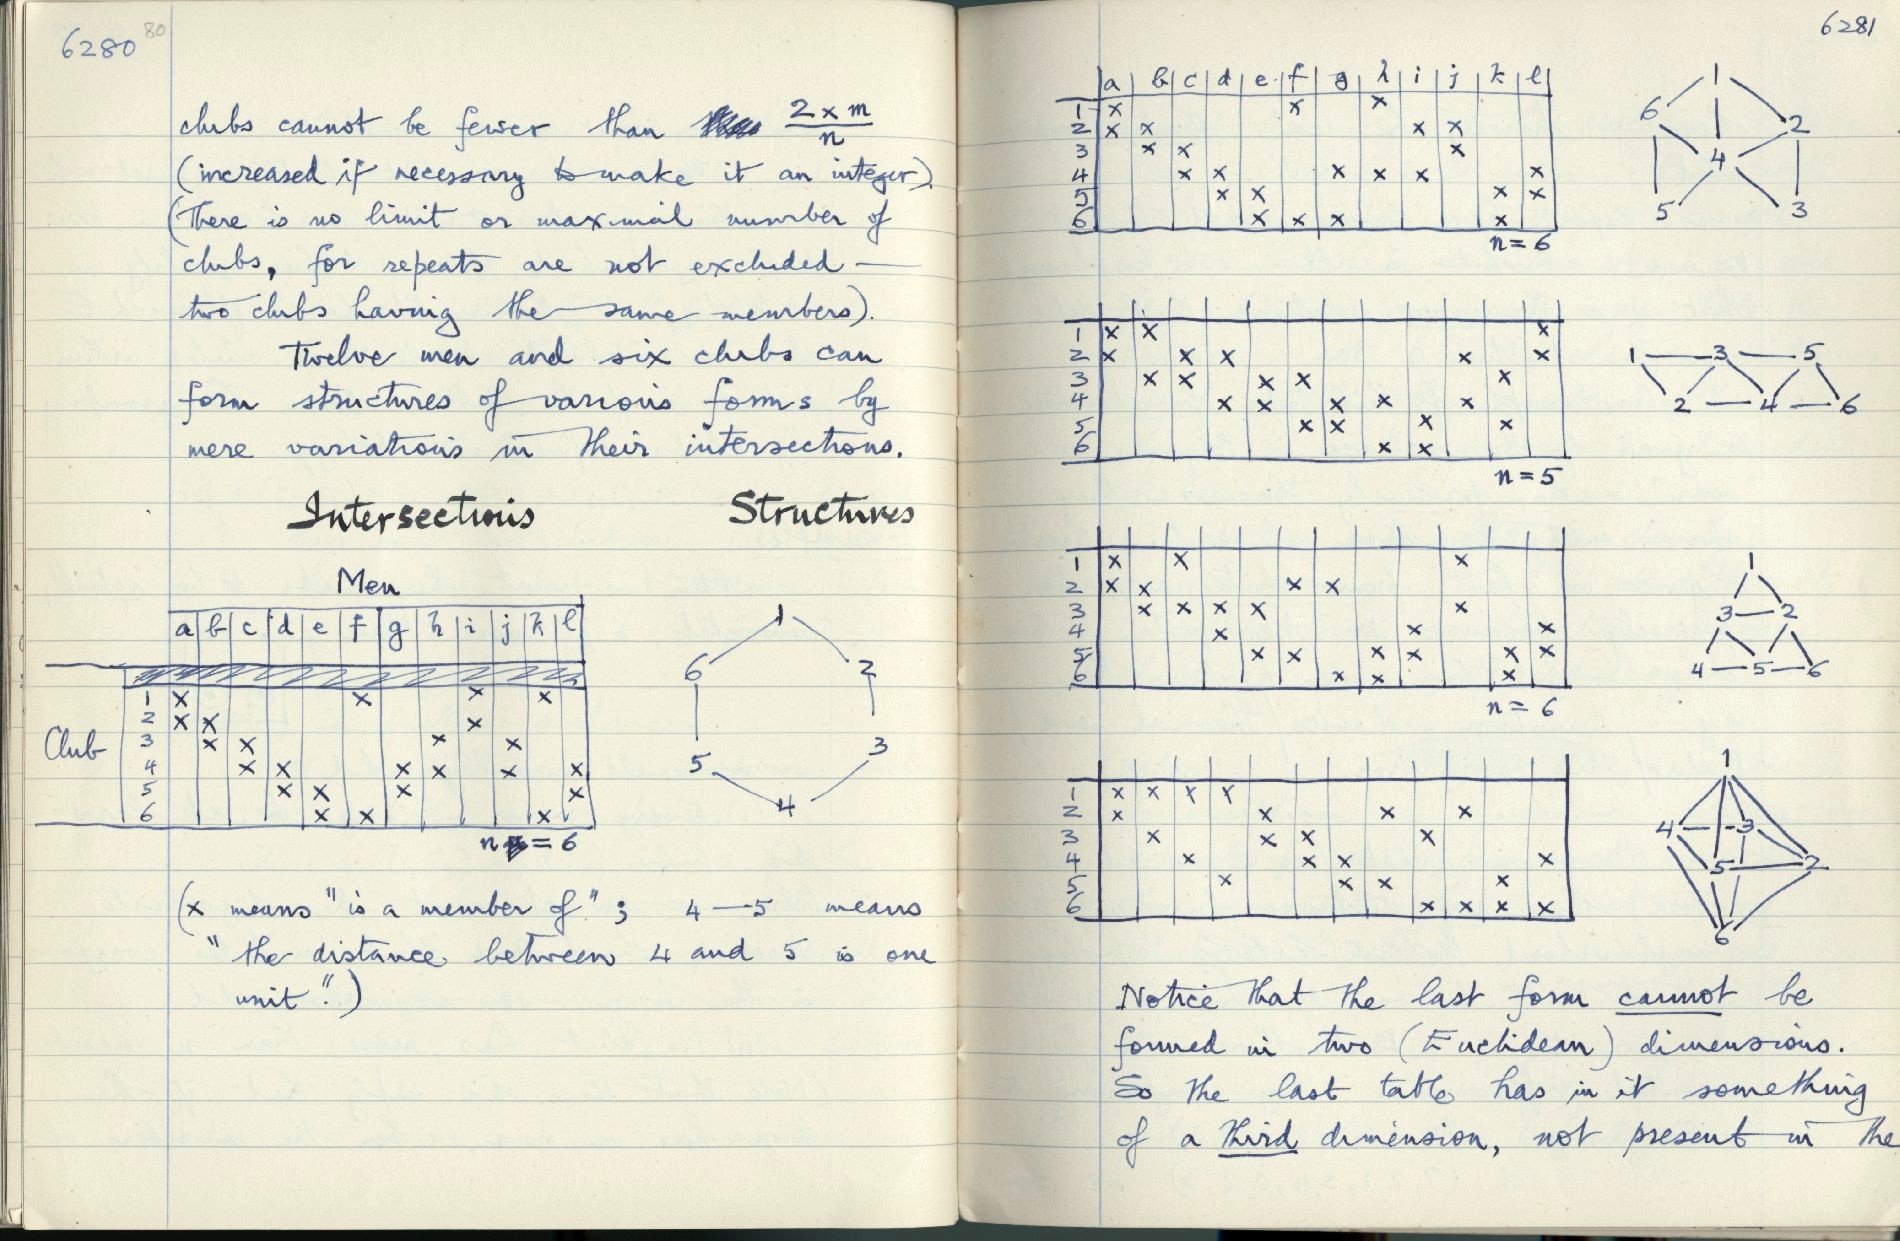 6280 80
clubs cannot be fewer than 2 x m / n
(increased if necessary to make it an integer).
(There is no limit or maximal number of
clubs, for repeats are not excluded —
two clubs having the same members).
Twelve men and six clubs can
form structures of various forms by
mere variations in their intersections.
Intersections Structures
Men
a b c d e f g h i j k l
Club
1 x x x x
2 x x x
3 x x x x
4 x x x x x x
5 x x x x
6 x x x
n = 6
1
6 2
5 3
4
(x means "is a member of" ; 4 — 5 means
"the distance between 4 and 5 is one
unit".)
6281
a b c d e f g h i j k l
1 x x x
2 x x x x
3 x x x
4 x x x x x x
5 x x x x
6 x x x x
n = 6
1
6 2
4
5 3
1 x x x
2 x x x x x
3 x x x x x
4 x x x x x
5 x x x x
6 x x
n = 5
1 — 3 — 5
2 — 4 — 6
1 x x x
2 x x x x
3 x x x x x
4 x x x
5 x x x x x x
6 x x x
n = 6
1
3 — 2
4 — 5 — 6
1 x x x x
2 x x x x
3 x x x x
4 x x x x
5 x x x x
6 x x x x
1
4 3
5 2
6
Notice that the last form cannot be
formed in two (Euclidean) dimensions.
So the last table has in it something
of a third dimension, not present in the